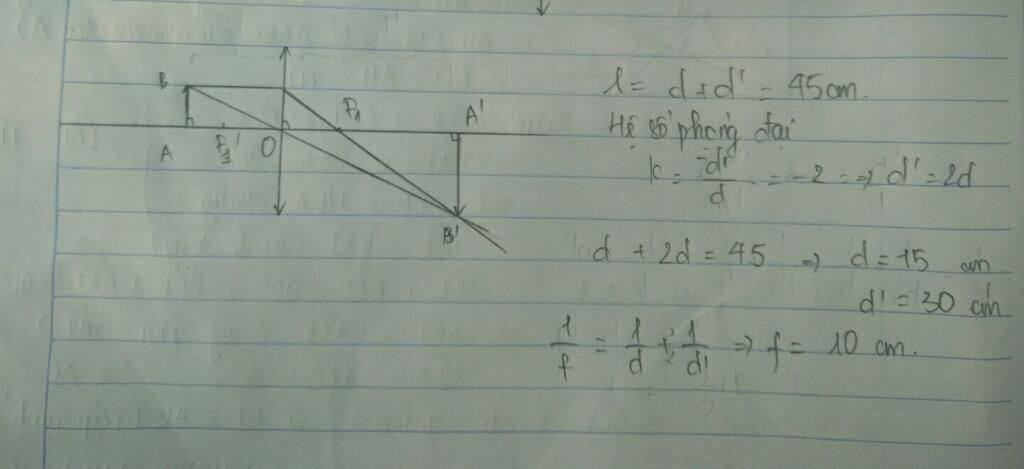 B
F₁
A'
A
F₂'
O
B'
l = d + d' = 45cm.
Hệ số phóng đại
k = -d'/d = -2 => d' = 2d
d + 2d = 45 => d = 15 cm
d' = 30 cm
1/f = 1/d + 1/d' => f = 10 cm.